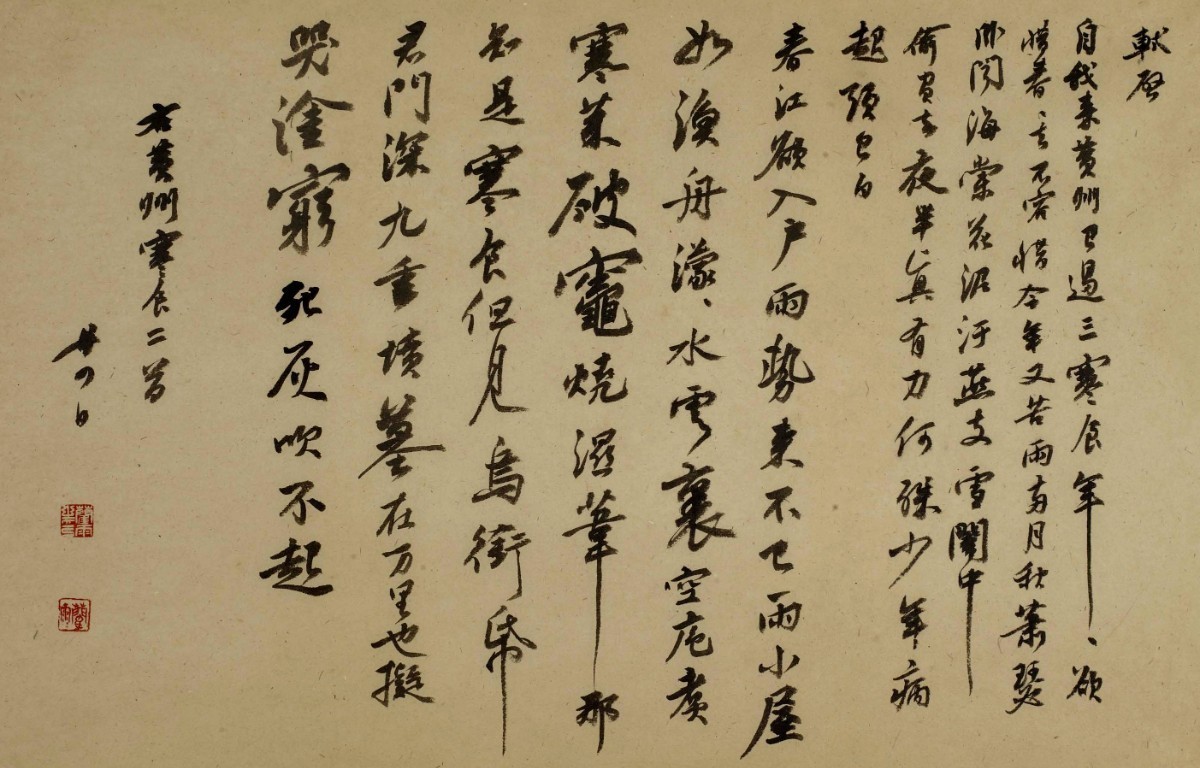 軾啓
自我來黃州已過三寒食年、欲
惜春、去不容惜今年又苦雨兩月秋蕭瑟
卧聞海棠花泥汙燕支雪闇中
偷負去夜半真有力何殊少年病
起頭已白
春江欲入戶雨勢來不已雨小屋
如漁舟濛、水雲裏空庖煮
寒菜破竈燒濕葦那
知是寒食但見烏銜帋
君門深九重墳墓在万里也擬
哭塗窮死灰吹不起
右黃州寒食二首
廿四日